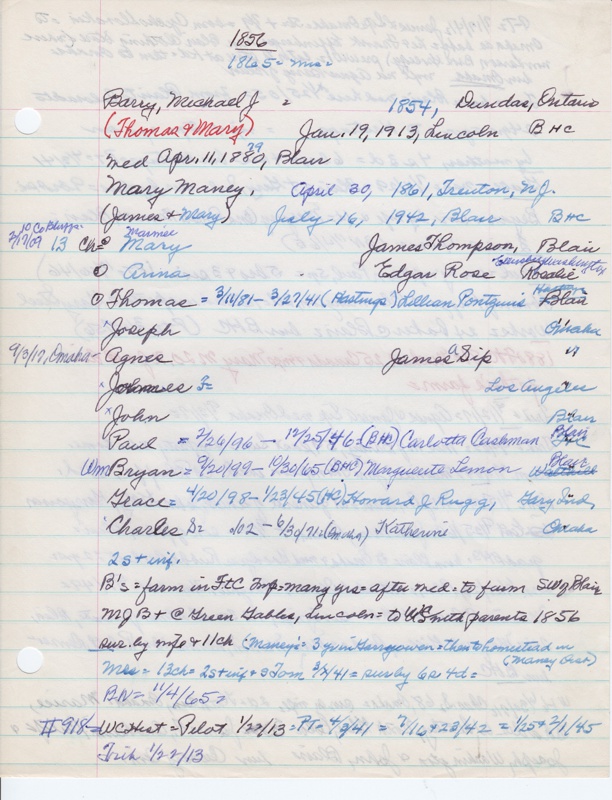 1856
1865 = Mrs =
Barry, Michael J = 1854, Dundas, Ontario
(Thomas & Mary) Jan. 19, 1913, Lincoln BHC
med Apr. 11, 1880, 79 Blair
Mary Maney, April 30, 1861, Trenton, N.J.
(James & Mary) July 16, 1942, Blair BHC
13 Ch = Mary James Thompson, Blair
O Anna Edgar Rose Rosalie
O Thomas = 3/11/81 - 3/27/41 (Hastings) Lillian Blair
x Joseph Omaha
9/3/17, Omaha - Agnes James A Sip "
x James Los Angeles
x John Blair
Paul = 2/26/96 - 12/25/46 (BHC) Carlotta Cashman Blair
Wm Bryan = 9/20/99 - 10/30/65 (BHC) Marguerite Lemon Blair
Grace = 4/20/98 - 1/23/45 (HC) Howard J Rugg, Gary Ind,
Charles Sr - 6/30/71 (Omaha) Katherine Omaha
2s + inf.
B's = farm in FtC Twp = many yrs = after med = to farm SW of Blair
MJB + @ Green Gables, Lincoln = to WC parents 1856
sur. by wife & 11 ch (Maney's = 3 yr in Garryowen = then to homestead in
(Maney Area)
Mrs = 13 ch = 2s + inf + s Tom 3/ /41 = sur by 6s 4d =
BN = 11/4/65 =
II 918 = WCHist = Pilot 1/22/13 = PT = 4/3/41 = 7/16 & 23/42 = 1/25 & 2/1/45
Trib 1/22/13